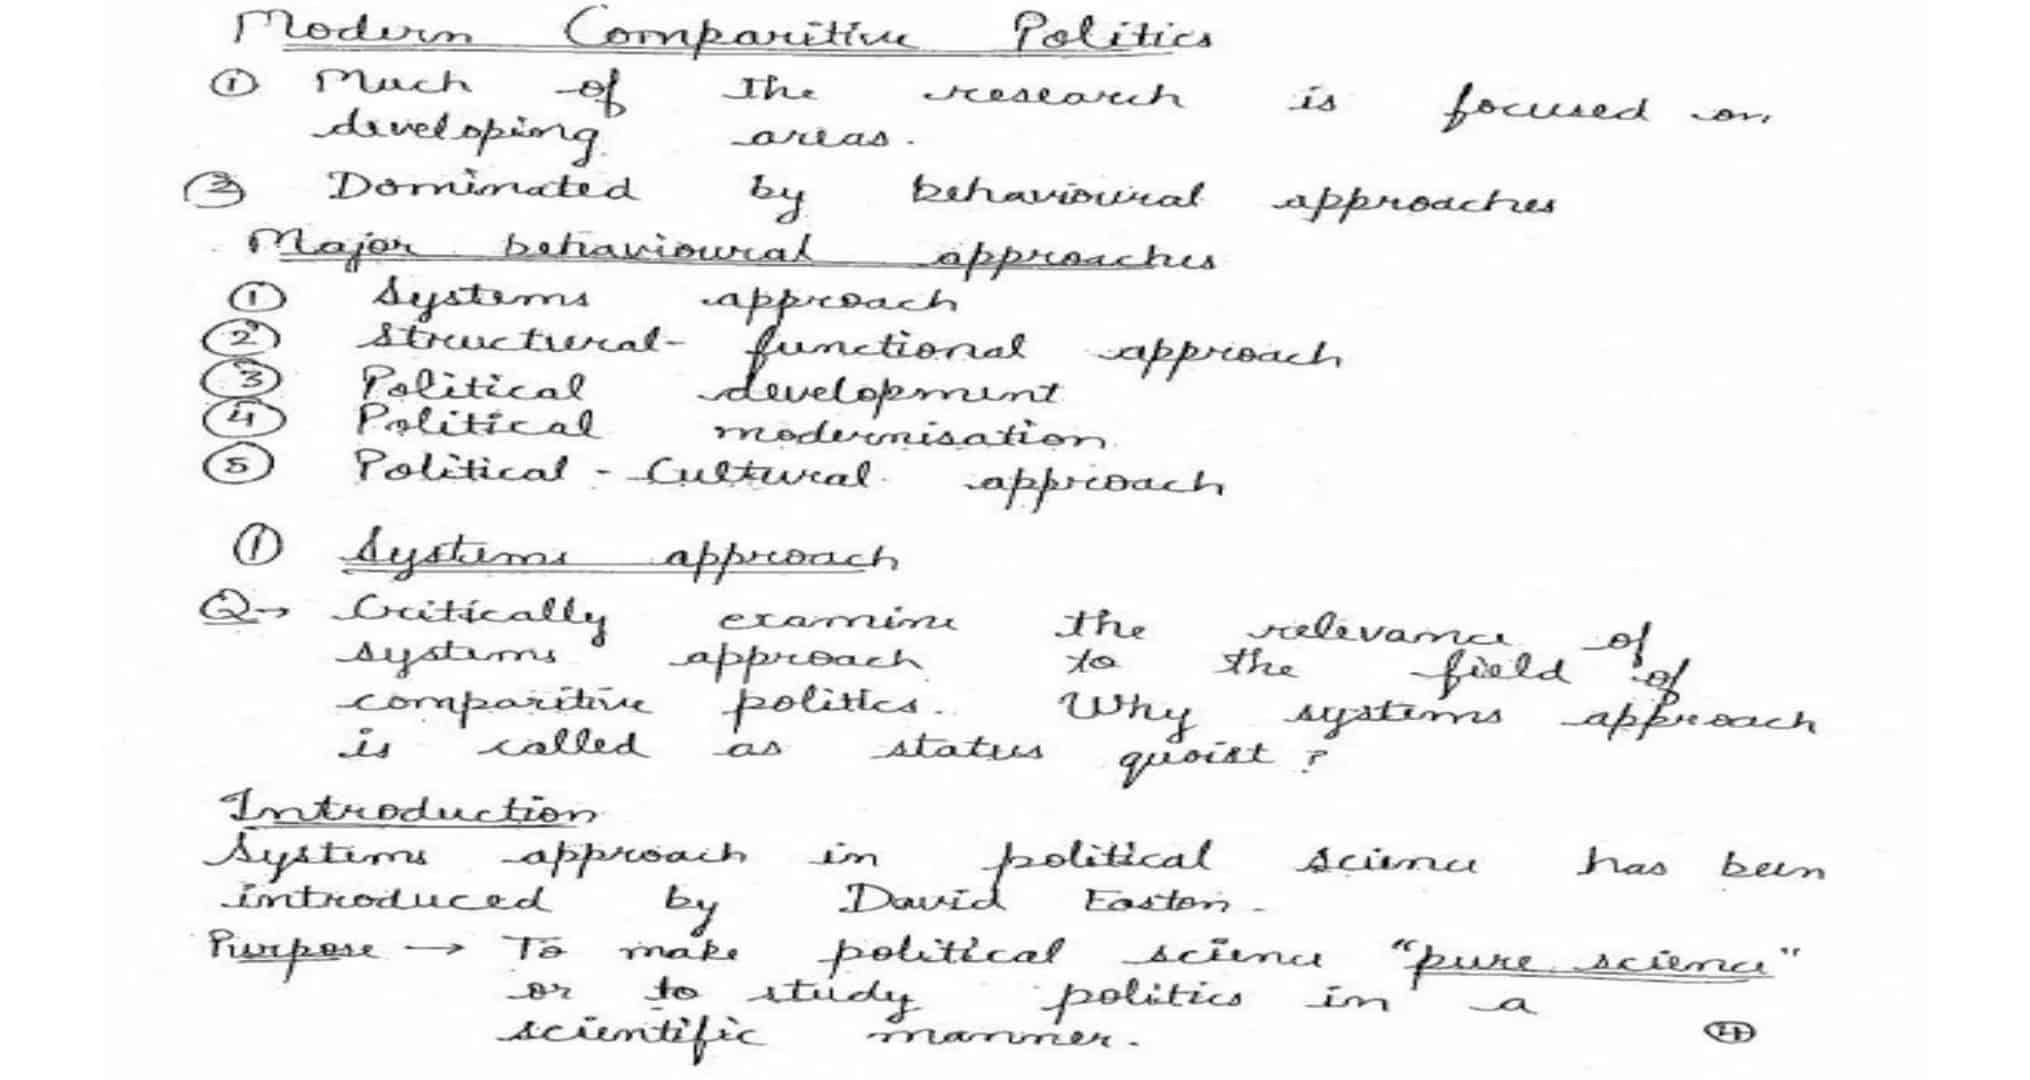 Modern Comparitive Politics
① Much of the research is focused on
developing areas.
② Dominated by behavioural approaches
Major behavioural approaches
① Systems approach
② Structural-functional approach
③ Political development
④ Political modernisation
⑤ Political-Cultural approach
① Systems approach
Q→ Critically examine the relevance of
systems approach to the field of
comparitive politics. Why systems approach
is called as status quoist?
Introduction
Systems approach in political science has been
introduced by David Easton.
Purpose → To make political science "pure science"
or to study politics in a
scientific manner.
④